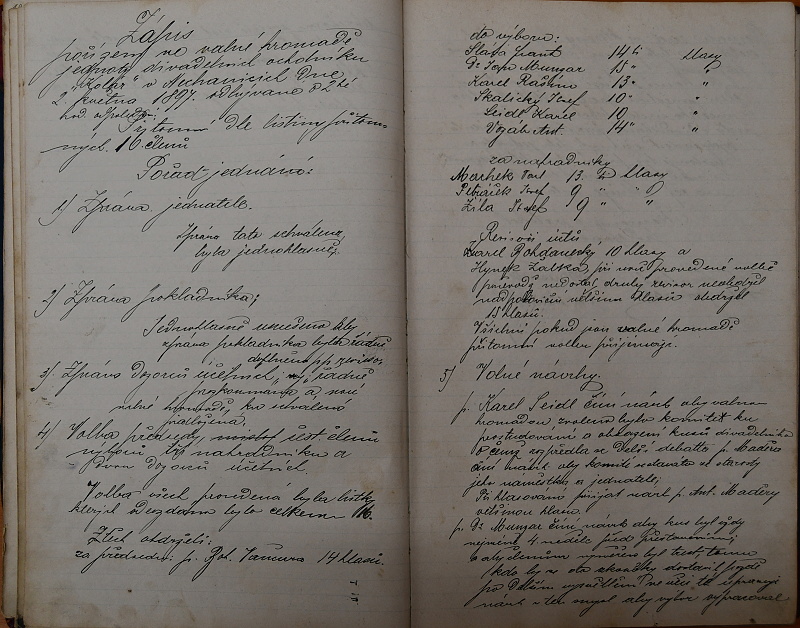 Zápis
pořízený ve valné hromadě
jednoty divadelních ochotníků
"Kolár" v Nechanicích dne
2. května 1897. odbývané o 2 hé
hod. odpolední.
Přítomno dle listiny přítom-
ných 16 členů
Pořad jednání:
1) Zpráva jednatele.
Zpráva tato schválena
byla jednohlasně,
2) Zpráva pokladníka;
Jednohlasně usneseno aby
zpráva pokladníka byla řádně
doplněna p.p. revisor
3) Zpráva dozorců účetních, řádně
prozkoumána a nové
valné hromadě, ku schválení
předložena.
4) Volba předsedy, šest členů
výboru náhradníků a
dvou dozorců účetních.
Volba všech provedená byla lístky
kterých odevzdáno bylo celkem 16.
Z těch obdrželi:
za předsedu: p. Boh. Vančura 14 hlasů.
do výboru:
Slavo Frant 14 hlasy
Dr Jan Mungar 15 "
Karel Rašín 13 "
Skalický Josef 10 "
Seidl Karel 10 "
Vogáb Ant. 14 "
za náhradníky
Machek 13 hlasy
Petráček Josef 9 " "
Zíla Josef 9 " "
Revisoři účtů
Karel Bohdanecký 10 hlasy a
Hynek Žalska, při nově provedené volbě
poněvadž druhý revisor neobdržel
nadpoloviční většinu hlasů obdržel
15 hlasů.
Všichni pokud jsou valné hromadě
přítomni volbu přijímají.
5) Volné návrhy.
p. Karel Seidl činí návrh aby valnou
hromadou zvoleno bylo komitét ku
prostudování a obhození kusů divadelních
začež rozpředla se delší debatta p. Madera
činí návrh aby komité sestávalo ze starosty
jeho náměstka a jednatele;
Při hlasování přijat návrh p. Ant. Madery
většinou hlasů.
p. Dr Mungar činí návrh aby kus byl vždy
nejméně 4 neděle před představením
a aby členům vyměřen byl trest, tomu
kdo by se do zkoušky dostavil pozdě
po delším vysvětlení
návrh v ten smysl aby výbor vypracoval